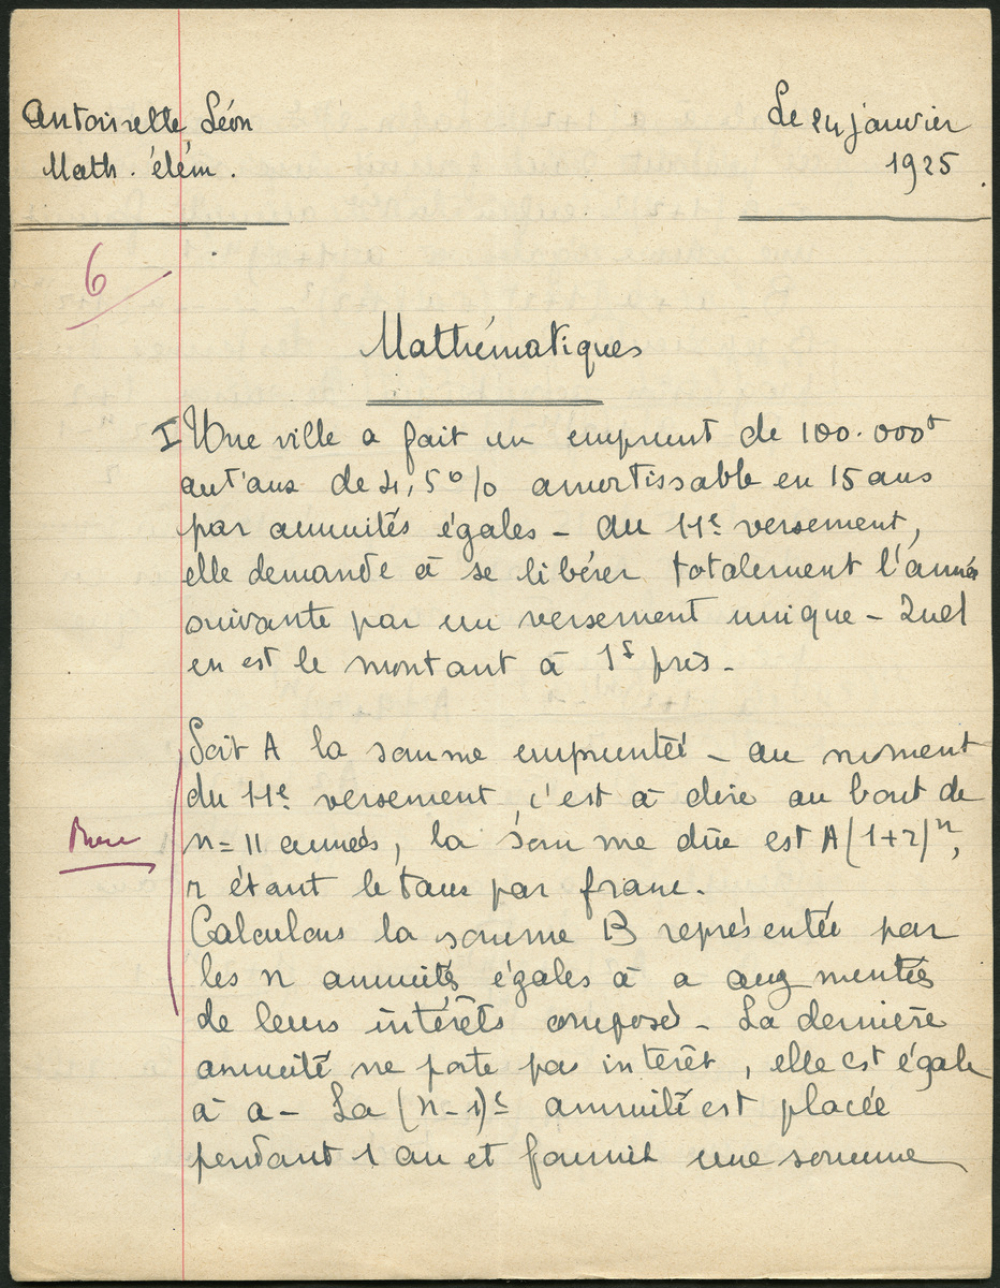 Antoinette Léon
Math. élém.
Le 24 janvier
1925
6
Mathématiques
I Une ville a fait un emprunt de 100.000f
au taux de 4,5% amortissable en 15 ans
par annuités égales – Au 11e versement,
elle demande à se libérer totalement l'année
suivante par un versement unique – Quel
en est le montant à 1f près –
Soit A la somme empruntée – au moment
du 11e versement c'est à dire au bout de
n = 11 années, la somme dûe est A(1+r)^n,
r étant le taux par franc.
Calculons la somme B représentée par
les n annuités égales à a augmentées
de leurs intérêts composés – La dernière
annuité ne porte pas intérêt, elle est égale
à a – La (n-1)e annuité est placée
pendant 1 an et fournit une somme